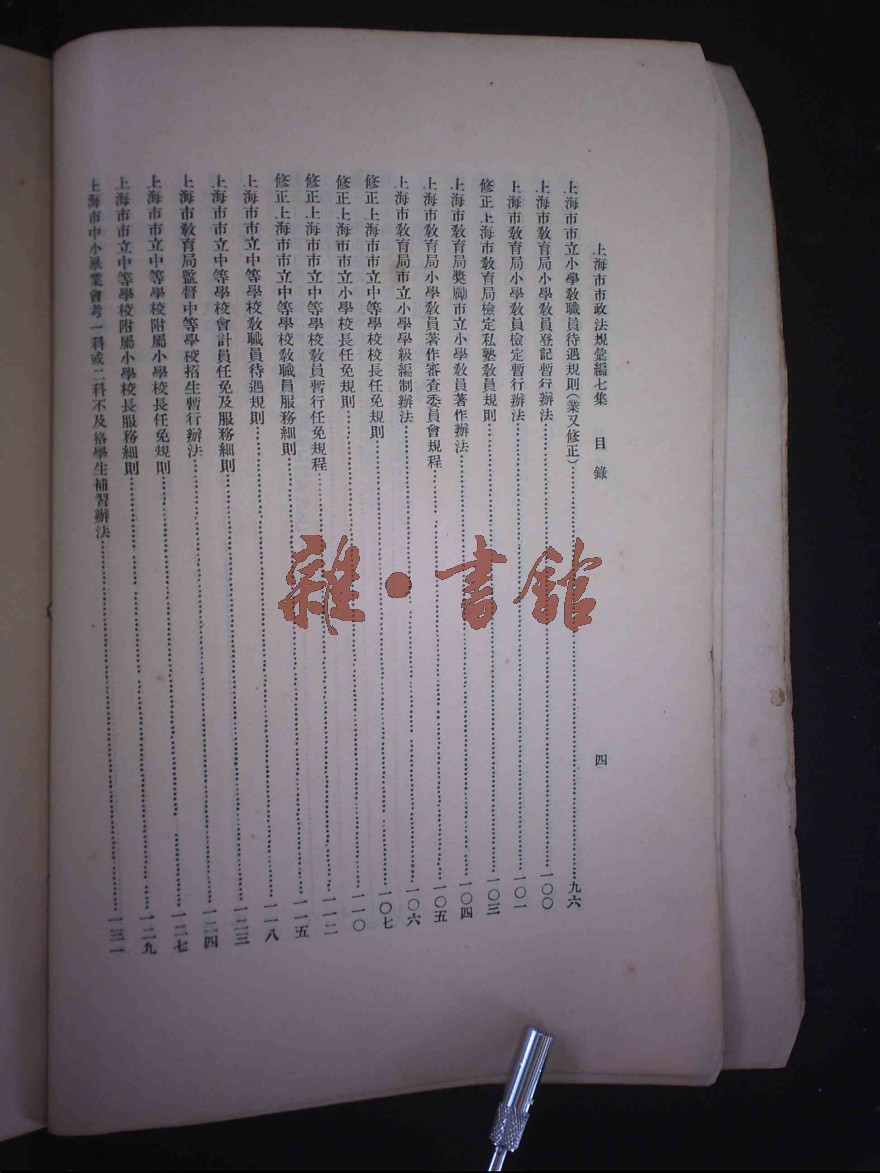 上海市市政法規彙編七集 目錄 四
上海市市立小學教職員待遇規則(業又修正)……九六
上海市教育局小學教員登記暫行辦法……一〇〇
上海市教育局小學教員檢定暫行辦法……一〇一
修正上海市教育局檢定私塾教員規則……一〇三
上海市教育局獎勵市立小學教員著作辦法……一〇四
上海市教育局小學教員著作審查委員會規程……一〇五
上海市教育局市立小學學級編制辦法……一〇六
修正上海市市立中等學校校長任免規則……一〇七
修正上海市市立小學校長任免規則……一一〇
修正上海市市立中等學校教員暫行任免規程……一一二
修正上海市市立中等學校教職員服務細則……一一五
上海市市立中等學校教職員待遇規則……一一八
上海市市立中等學校會計員任免及服務細則……一二三
上海市教育局監督中等學校招生暫行辦法……一二四
上海市市立中等學校附屬小學校長任免規則……一二七
上海市市立中等學校附屬小學校長服務細則……一二九
上海市中小學畢業會考一科或二科不及格學生補習辦法……一三一
雜·書館